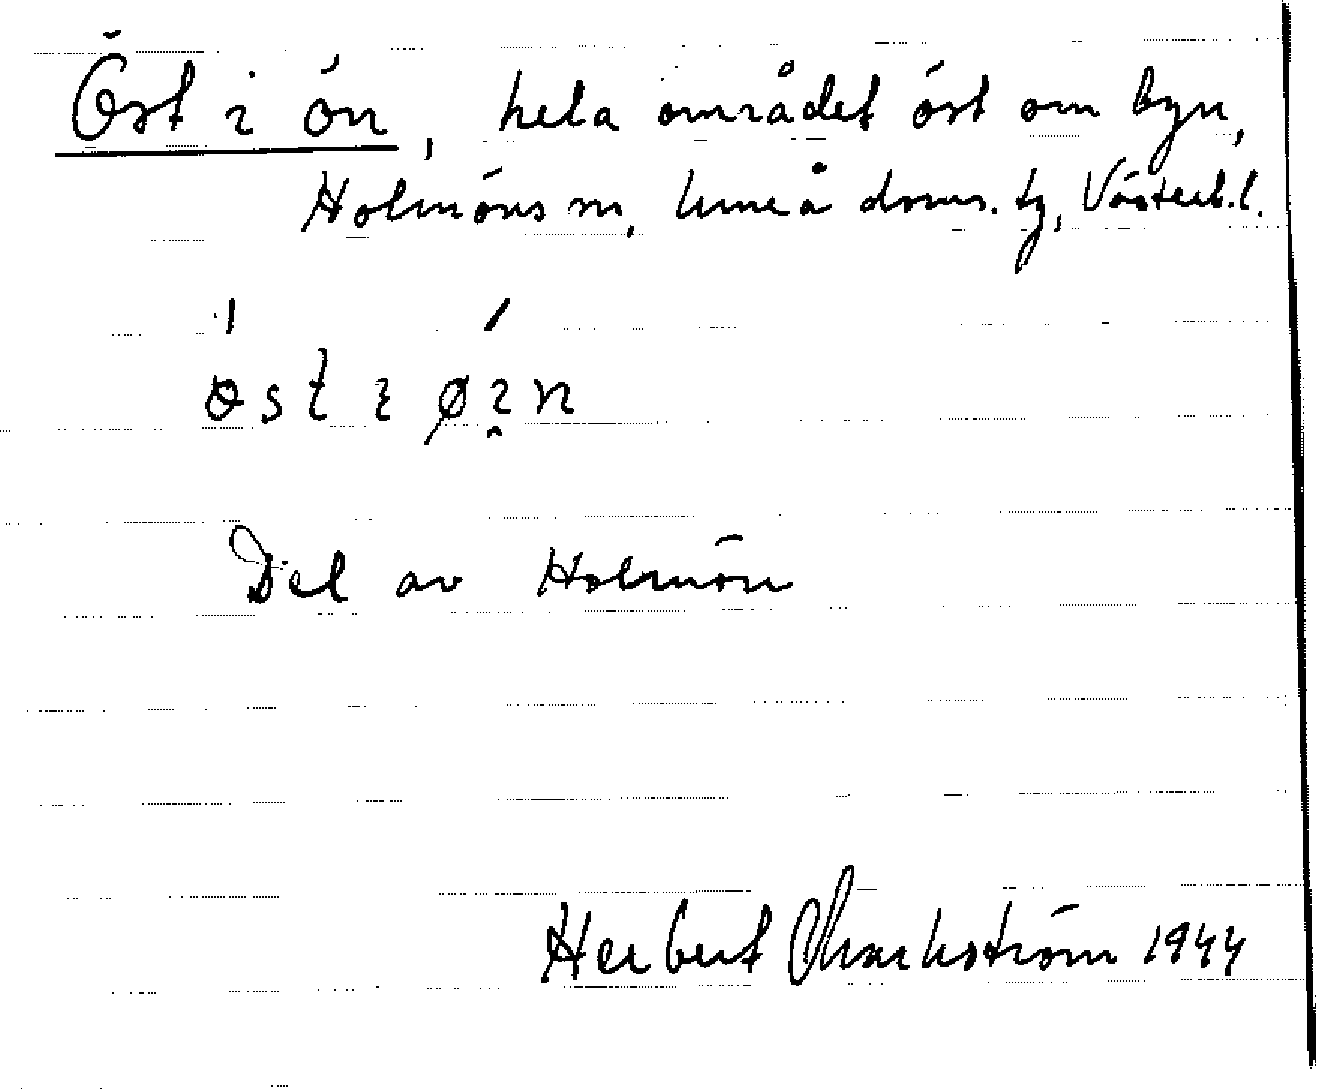 Öst i ön, hela området öst om byn,
Holmöns sn, Umeå doms. tg, Västerb. l.
öst i øin
Del av Holmön
Herbert Markström 1944